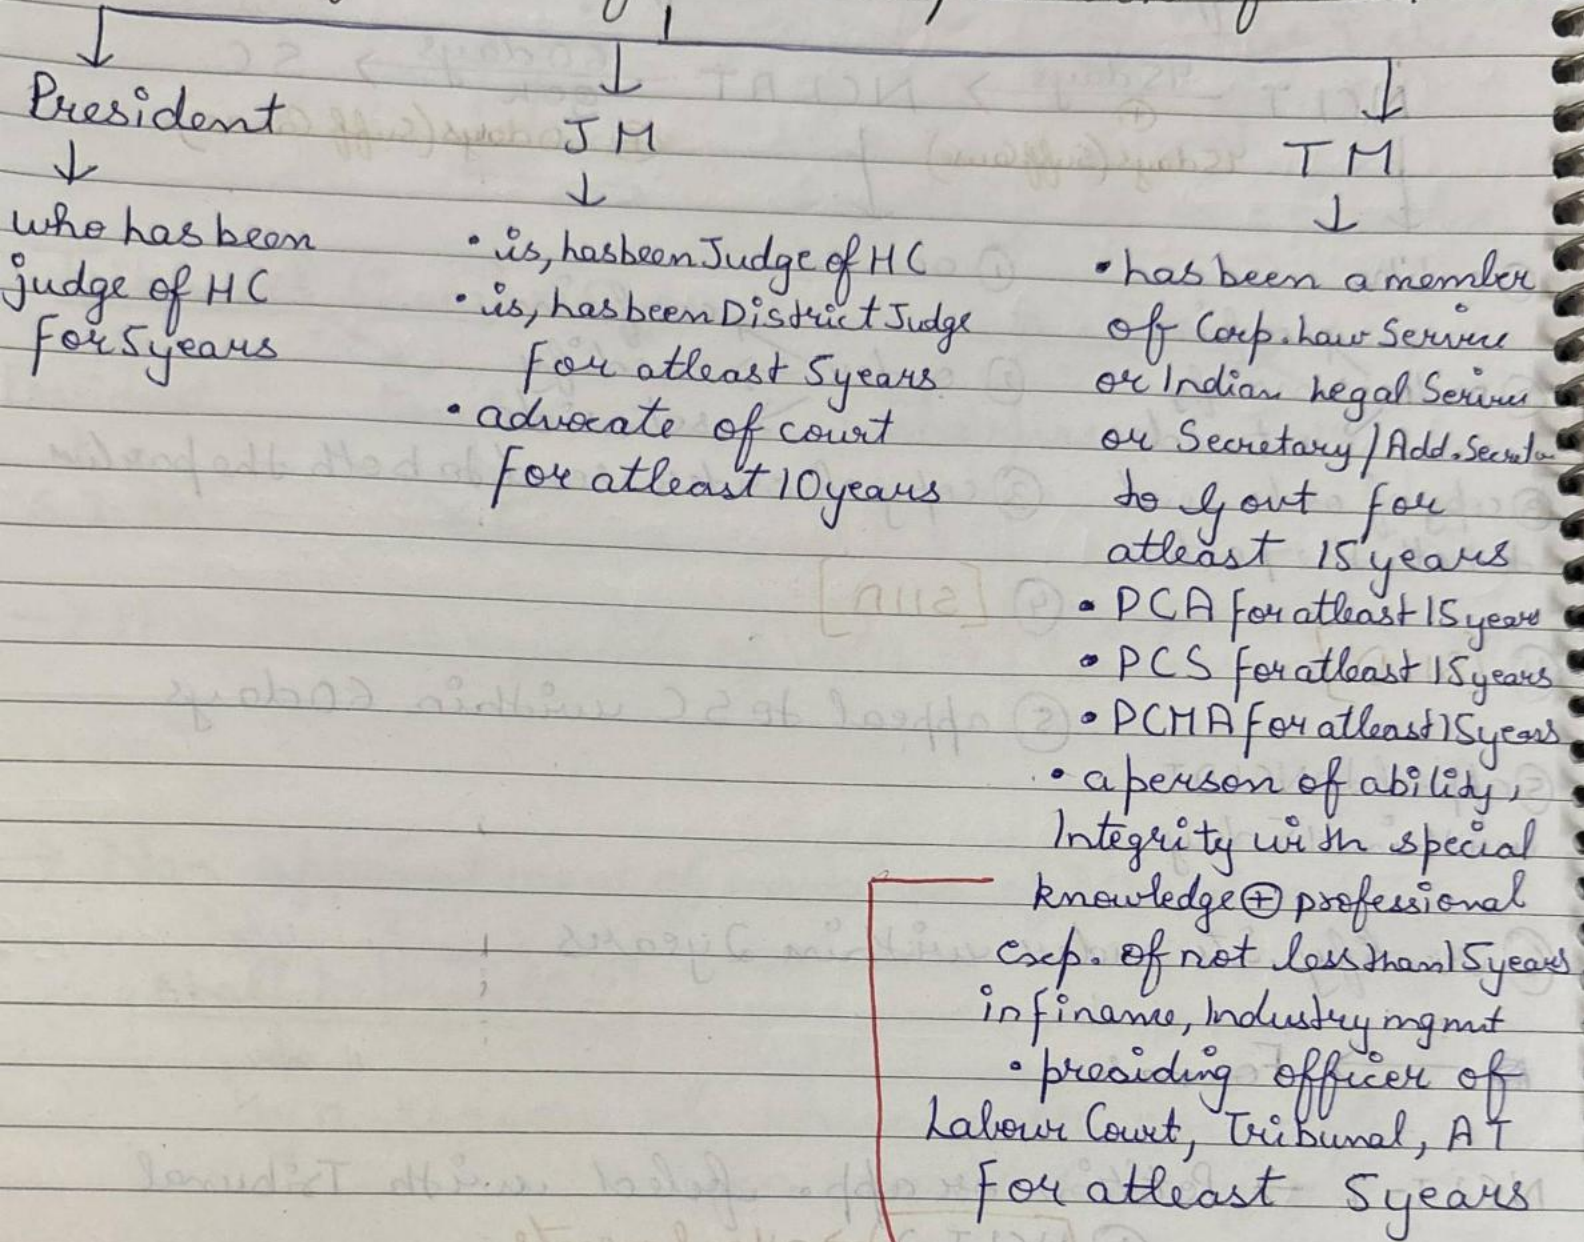 President
↓
who has been
judge of HC
for 5 years
JM
↓
• is, has been Judge of HC
• is, has been District Judge
for atleast 5 years
• advocate of court
for atleast 10 years
TM
↓
• has been a member
of Corp. Law Service
or Indian Legal Service
or Secretary / Add. Secreta
to Govt for
atleast 15 years
• PCA for atleast 15 years
• PCS for atleast 15 years
• PCMA for atleast 15 years
• a person of ability,
Integrity with special
knowledge ⊕ professional
exp. of not less than 15 years
in finance, Industry mgmt
• presiding officer of
Labour Court, Tribunal, AT
for atleast 5 years